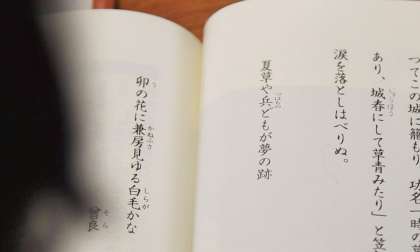 つてこの城に籠もり、功名一時の
あり、城春にして草青みたり」と笠
涙を落としはべりぬ。
夏草や兵どもが夢の跡
卯の花に兼房見ゆる白毛かな
曽良